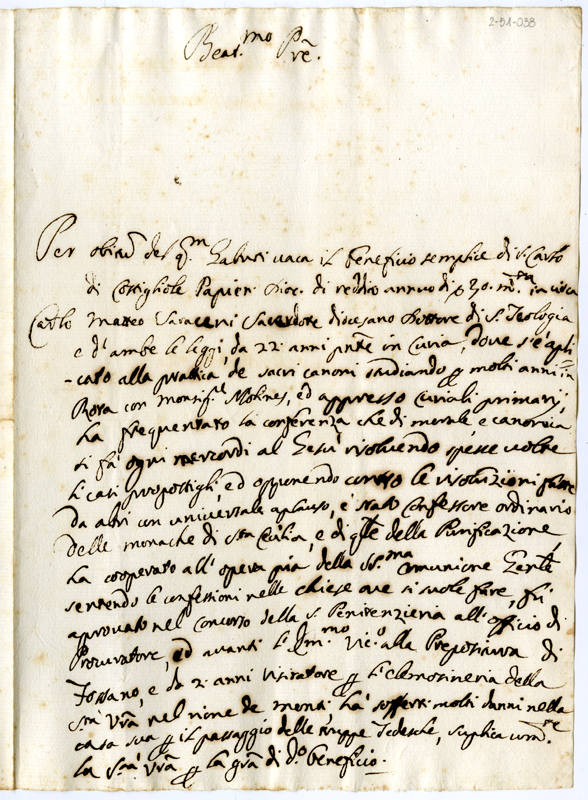 2-51-038
Beat.mo Prē.
Per obitū del q.m vaca il beneficio semplice di S. Carlo
di Costigliole Papien. Dioc. di reddito annuo di 30. m.ta in circa
Carlo Matteo Saraceni Sacerdote diocesano Dottore di S. Teologia
e d'ambe le leggi, da 22 anni pñte in Curia, dove s'è apli
-cato alla prattica de sacri canoni studiando p molti anni in
Rota con Monsig.r Molines, ed appresso Curiali primarij,
ha frequentato la conferenza che di morale, e canonica
si fà ogni mercordì al Gesù risolvendo spesse volte
li casi propostigli, ed opponendo contro le risoluzioni fatte
da altri con universale aplauso, è stato Confessore ordinario
delle monache di S.ta Cecilia, e di q̃lle della Purificazione
ha cooperato all'opera pia della SS.ma Comunione Genẽle
sentendo le confessioni nelle chiese ove si suole fare, fù
aprovato nel concorso della S. Penitenzieria all'officio di
Procuratore, ed avanti l'Em.mo Vic.o alla Prepositura di
Fossano, e da 2 anni Visitatore p l'elemosineria della
S.tà Vrã nel rione de monti hà sofferti molti danni nella
casa sua p il passaggio delle truppe Tedesche, suplica um.te
la S.tà Vrã p la grã di d.o beneficio.